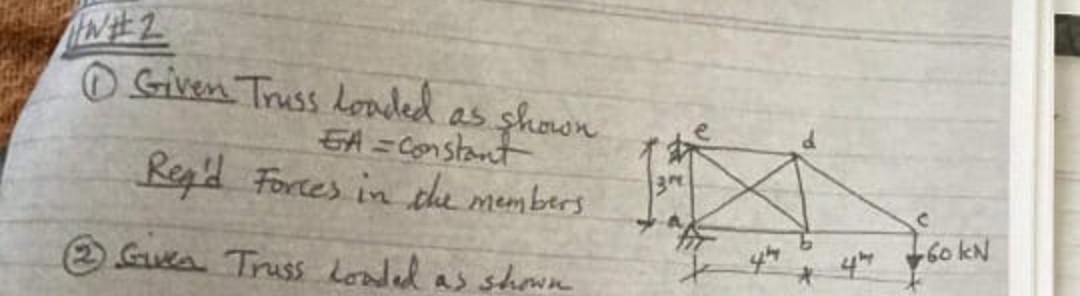 HW#2
① Given Truss loaded as shown
EA = Constant
Req'd Forces in the members
② Given Truss loaded as shown
e
d
3m
a
b
c
60 kN
4m
4m